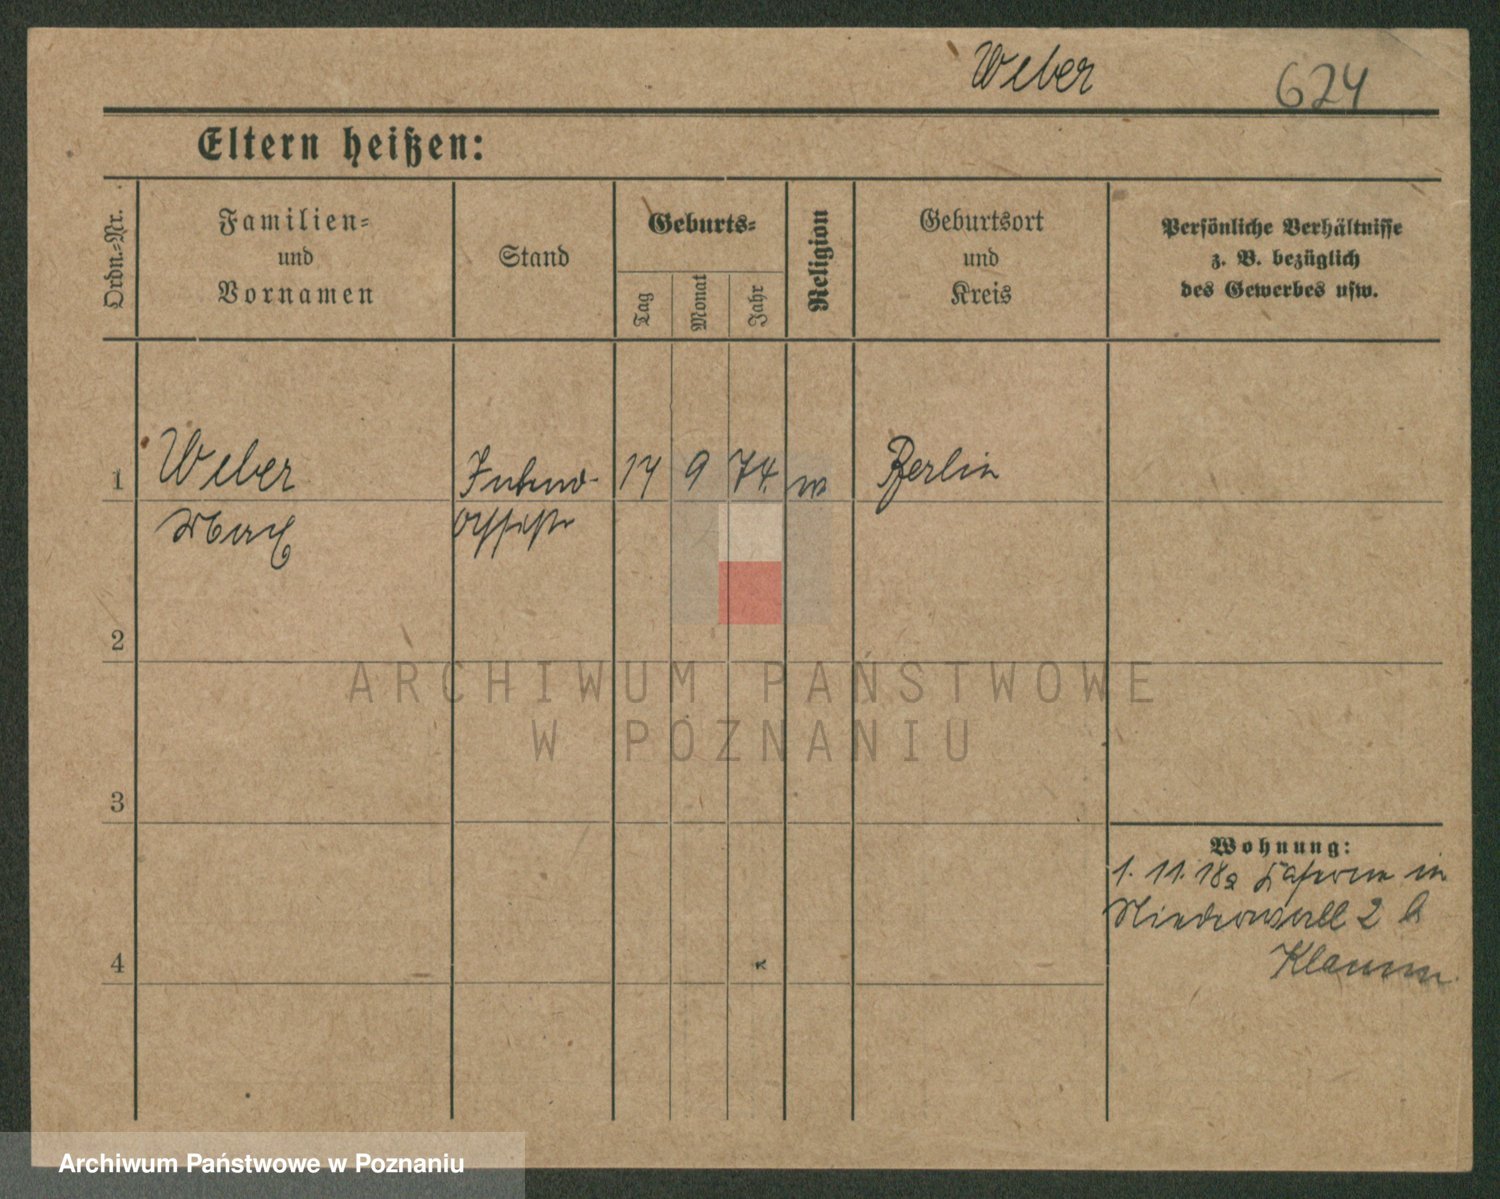 Weber 624
Eltern heißen:
Ordn.=Nr.
Familien=
und
Vornamen
Stand
Geburts=
Tag
Monat
Jahr
Religion
Geburtsort
und
Kreis
Persönliche Verhältnisse
z. B. bezüglich
des Gewerbes usw.
1 Weber 9 74. Berlin
2
3
4
Wohnung:
1. 11. 18
Niederwall 2
ARCHIWUM PAŃSTWOWE
W POZNANIU
Archiwum Państwowe w Poznaniu